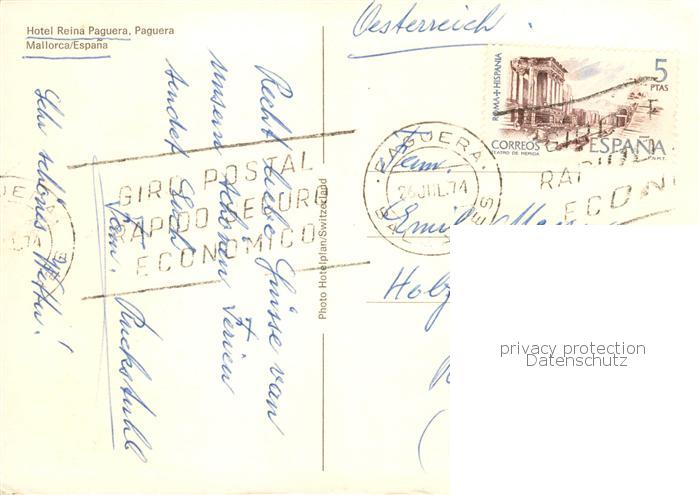 Hotel Reina Paguera, Paguera
Mallorca/España
Oesterreich.
ROMA + HISPANIA
5
PTAS
CORREOS
ESPAÑA
TEATRO DE MERIDA
F.N.M.T.
PAGUERA
26 JUL. 74
BALEARES
GIRO POSTAL
RAPIDO SEGURO
ECONOMICO
Recht liebe Grüsse von
unsern schönen Ferien
sendet Euch
Fam. Ruckstuhl
Sehr schönes Wetter!
Photo Hotelplan/Switzerland
Fam.
Emil
Holz
privacy protection
Datenschutz